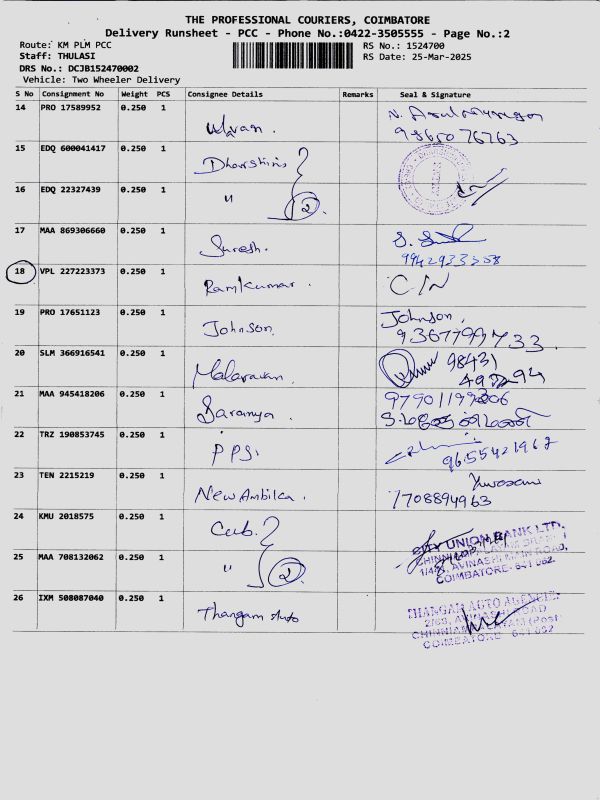 THE PROFESSIONAL COURIERS, COIMBATORE
Delivery Runsheet - PCC - Phone No.:0422-3505555 - Page No.:2
Route: KM PLM PCC
RS No.: 1524700
Staff: THULASI
RS Date: 25-Mar-2025
DRS No.: DCJB152470002
Vehicle: Two Wheeler Delivery
S No Consignment No Weight PCS Consignee Details Remarks Seal & Signature
14 PRO 17589952 0.250 1
98650 76763
15 EDQ 600041417 0.250 1 Dharshinis
16 EDQ 22327439 0.250 1 " 2
17 MAA 869306660 0.250 1 Suresh.
9942933558
18 VPL 227223373 0.250 1 Ramkumar. C/N
19 PRO 17651123 0.250 1 Johnson. Johnson,
9367799733
20 SLM 366916541 0.250 1 Malaravan. 98431
21 MAA 945418206 0.250 1 Saranya.
22 TRZ 190853745 0.250 1 PPS.
9655421967
23 TEN 2215219 0.250 1 New Ambika.
7708894963
24 KMU 2018575 0.250 1 Cub.
CITY UNION BANK LTD,
25 MAA 708132062 0.250 1 " 2
AVINASHI MAIN ROAD,
COIMBATORE- 641 062.
26 IXM 508087040 0.250 1 Thangam Auto
THANGAM AUTO AGENCIES
2/63, AVINASHI ROAD
CHINNIAMPALAYAM (Post)
COIMBATORE - 641 062